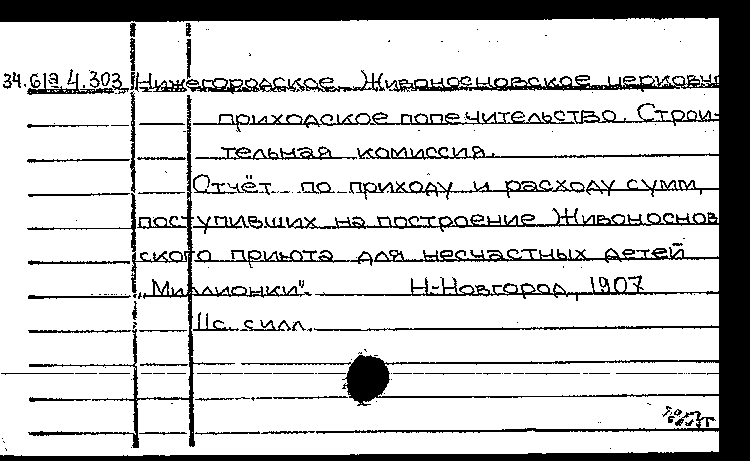 34.61а 4.303 Нижегородское Живоносновское церковно
приходское попечительство. Строи-
тельная комиссия.
Отчёт по приходу и расходу сумм,
поступивших на построение Живоноснов
ского приюта для несчастных детей
„Миллионки“. Н-Новгород, 1907
11с. с илл.